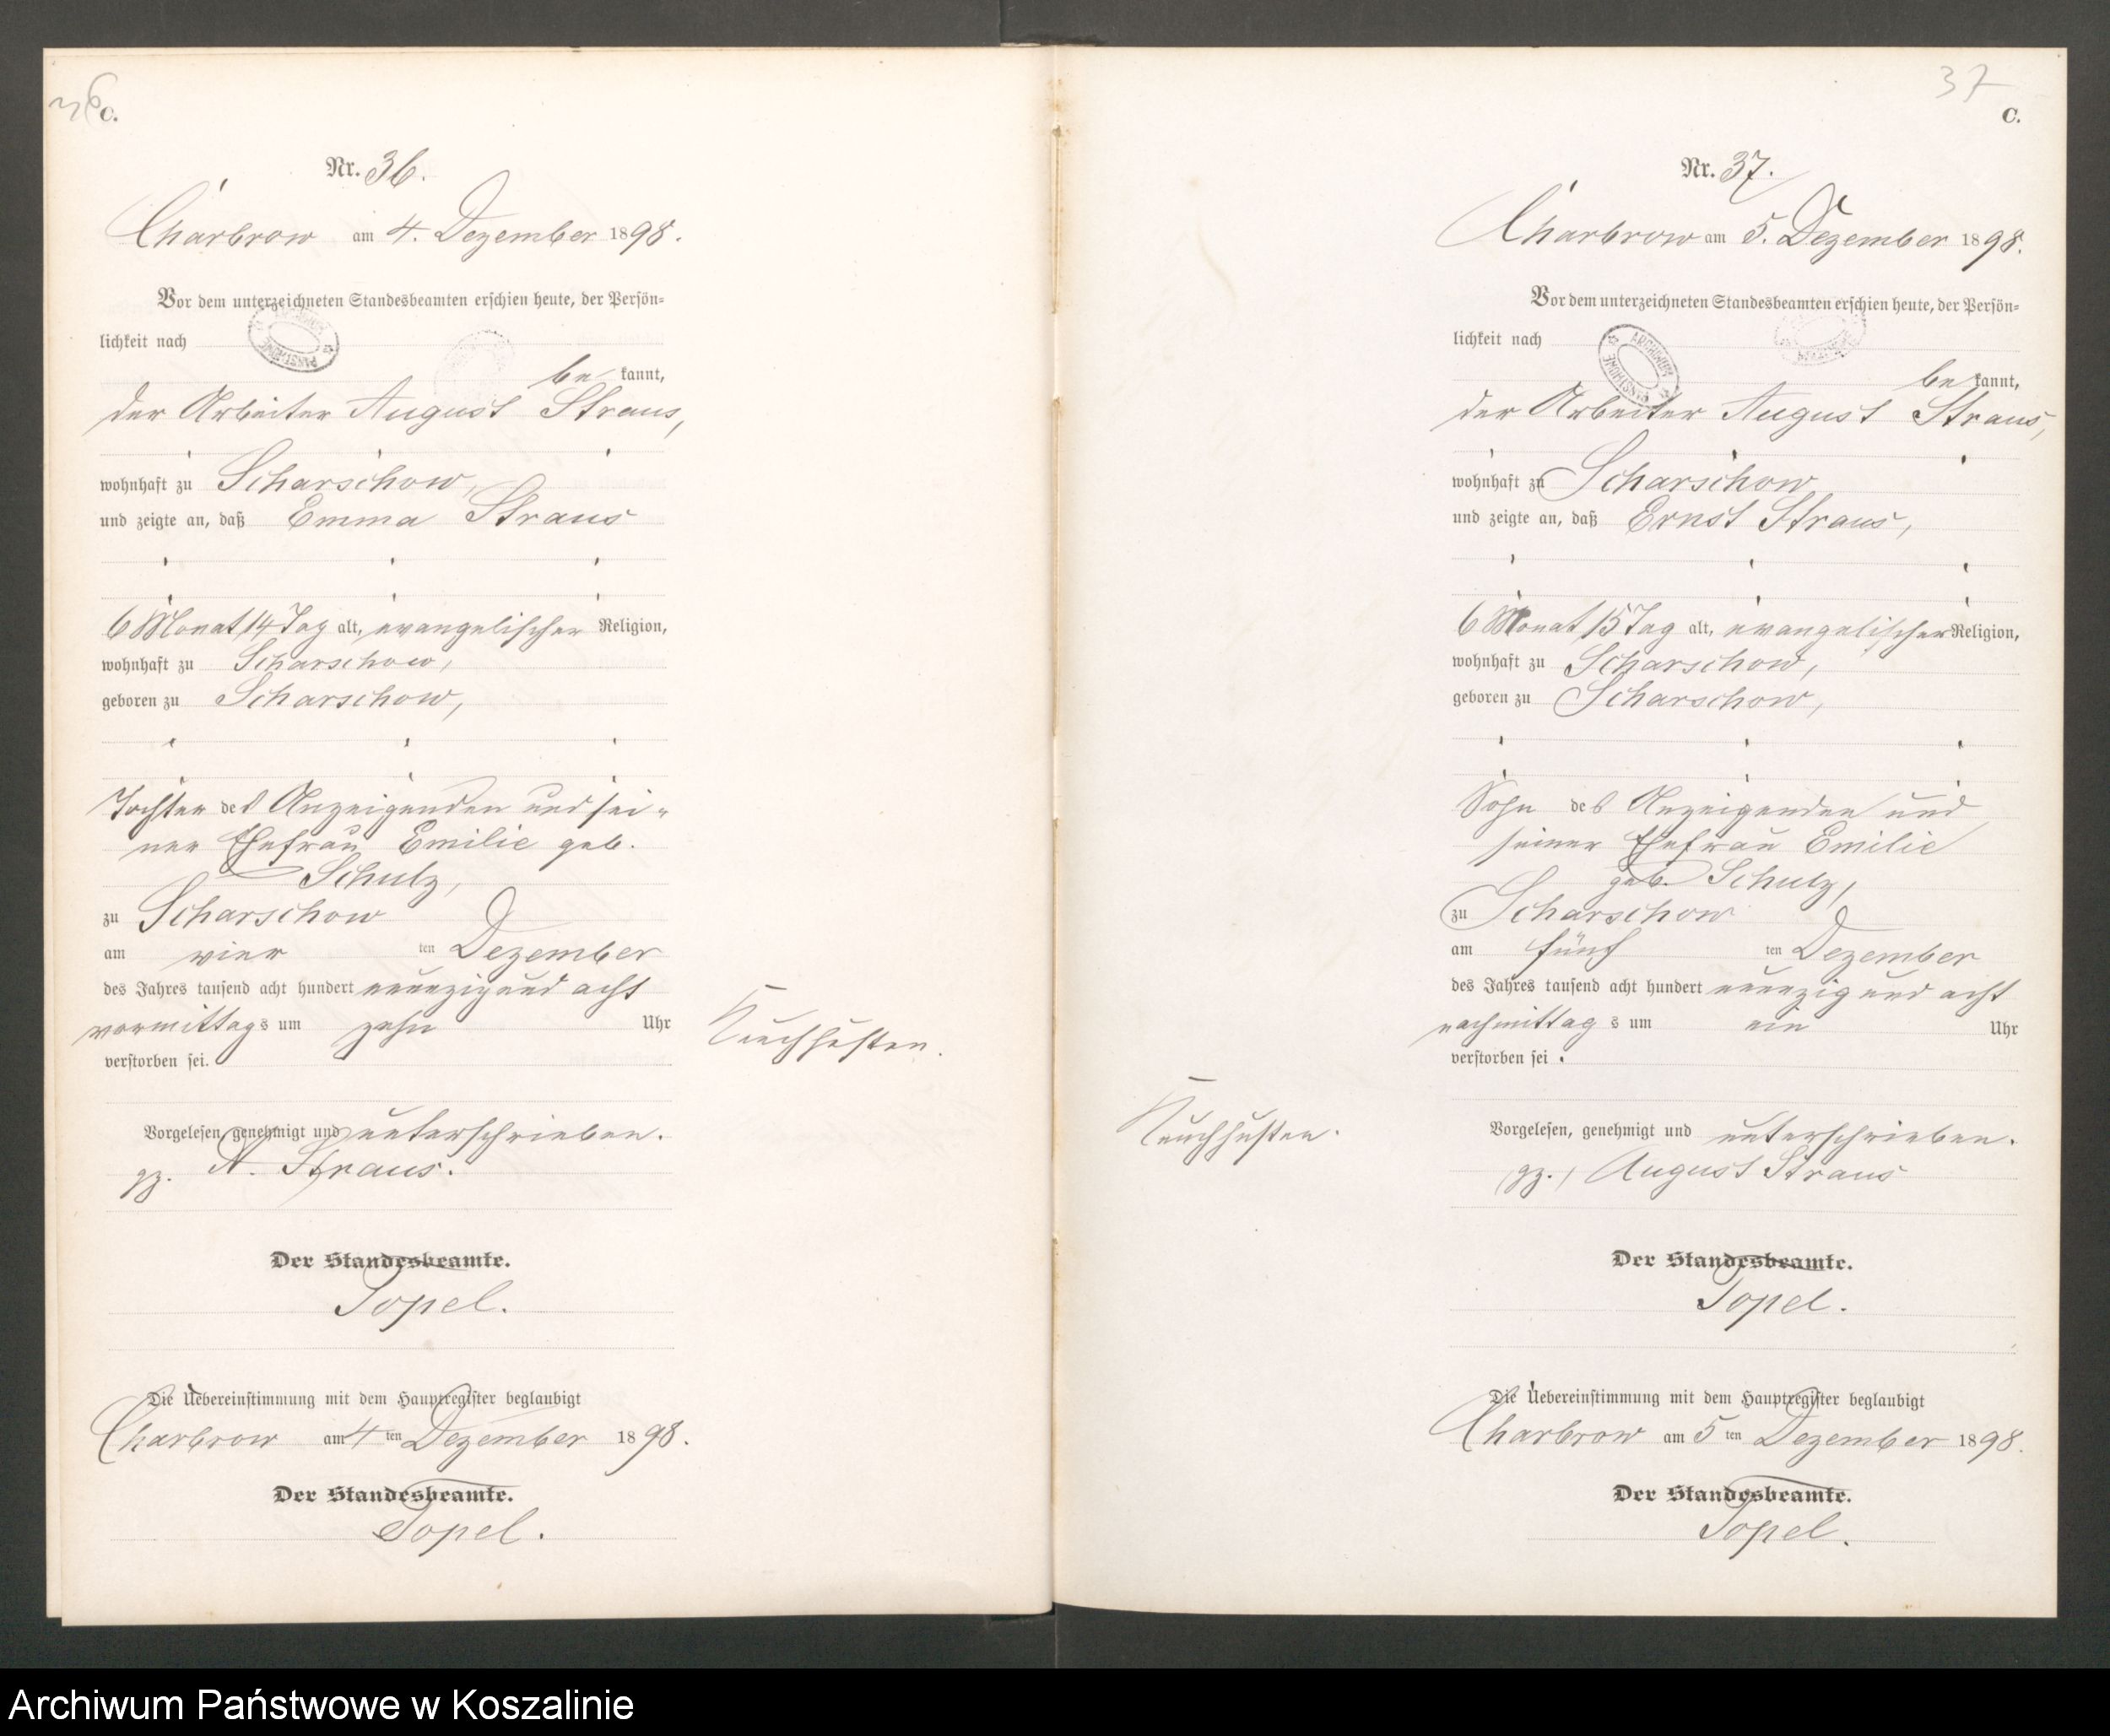 36
C.
Nr. 36.
Charbrow am 4. Dezember 1898.
Vor dem unterzeichneten Standesbeamten erschien heute, der Persön-
lichkeit nach
be kannt,
der Arbeiter August Straus,
wohnhaft zu Scharschow,
und zeigte an, daß Emma Straus
6 Monat 14 Tag alt, evangelischer Religion,
wohnhaft zu Scharschow,
geboren zu Scharschow,
Tochter des Anzeigenden und sei-
ner Ehefrau Emilie geb.
Schulz,
zu Scharschow
am vier ten Dezember
des Jahres tausend acht hundert neunzig und acht
vormittags um zehn Uhr
verstorben sei.
Keuchhusten.
Vorgelesen, genehmigt und unterschrieben.
gz. A. Straus.
Der Standesbeamte.
Topel.
Die Uebereinstimmung mit dem Hauptregister beglaubigt
Charbrow am 4 ten Dezember 1898.
Der Standesbeamte.
Topel.
37
C.
Nr. 37.
Charbrow am 5. Dezember 1898.
Vor dem unterzeichneten Standesbeamten erschien heute, der Persön-
lichkeit nach
ARCHIWUM PAŃSTWOWE
be kannt,
der Arbeiter August Straus,
wohnhaft zu Scharschow
und zeigte an, daß Ernst Straus,
6 Monat 15 Tag alt, evangelischer Religion,
wohnhaft zu Scharschow,
geboren zu Scharschow,
Sohn des Anzeigenden und
seiner Ehefrau Emilie
geb. Schulz,
zu Scharschow
am fünf ten Dezember
des Jahres tausend acht hundert neunzig und acht
nachmittags um ein Uhr
verstorben sei.
Keuchhusten.
Vorgelesen, genehmigt und unterschrieben.
(gz.) August Straus
Der Standesbeamte.
Topel.
Die Uebereinstimmung mit dem Hauptregister beglaubigt
Charbrow am 5 ten Dezember 1898.
Der Standesbeamte.
Topel.
Archiwum Państwowe w Koszalinie